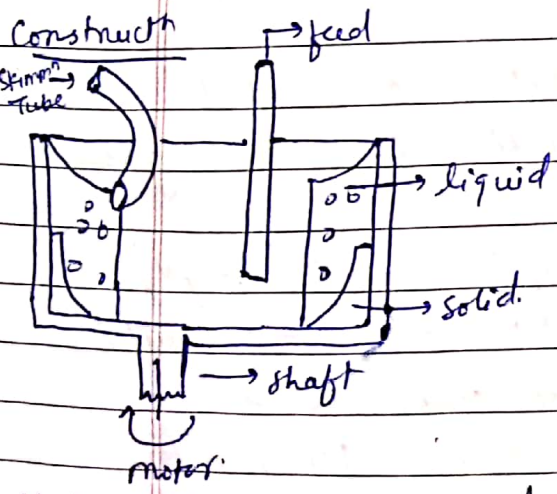 Constructn
feed
Skimmn
Tube
liquid
solid.
shaft
motor.